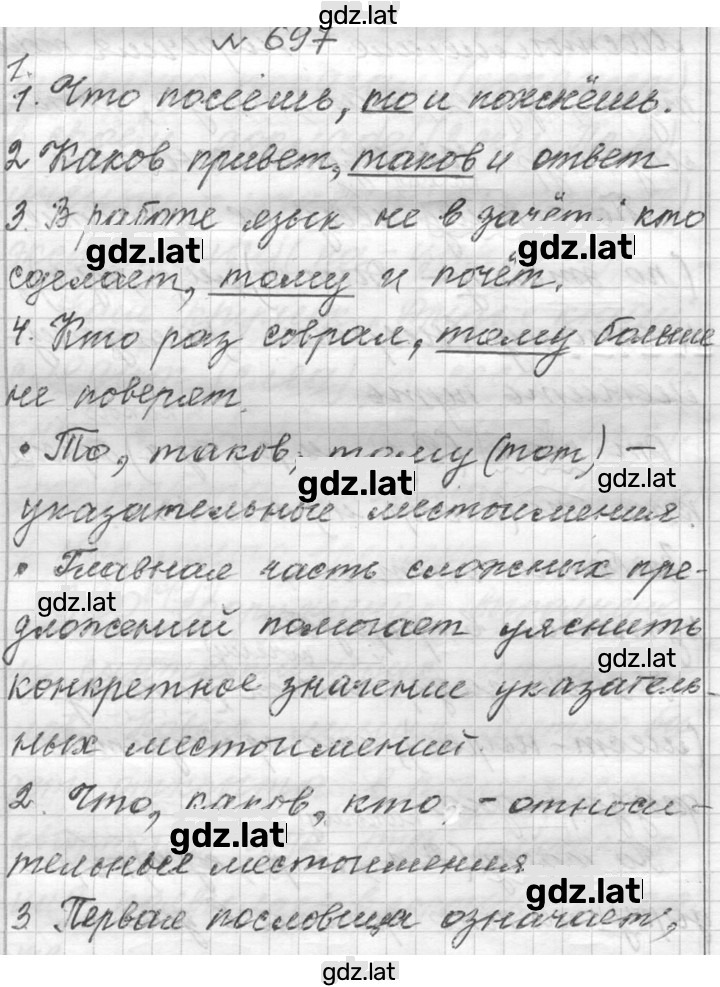 gdz.lat
№ 697
1.
1. Что посеешь, то и пожнёшь.
2 Каков привет, таков и ответ
3. В работе язык не в зачёт: кто
gdz.lat
gdz.lat
сделает, тому и почёт.
4. Кто раз соврал, тому больше
не поверят.
• То, таков, тому (тот) –
gdz.lat
gdz.lat
указательные местоимения.
• Главная часть сложных пре-
gdz.lat
дложений помогает уяснить
gdz.lat
конкретное значение указатель-
ных местоимений.
2. Что, каков, кто - относи-
gdz.lat
тельные местоимения
gdz.lat
3. Первая пословица означает,
gdz.lat